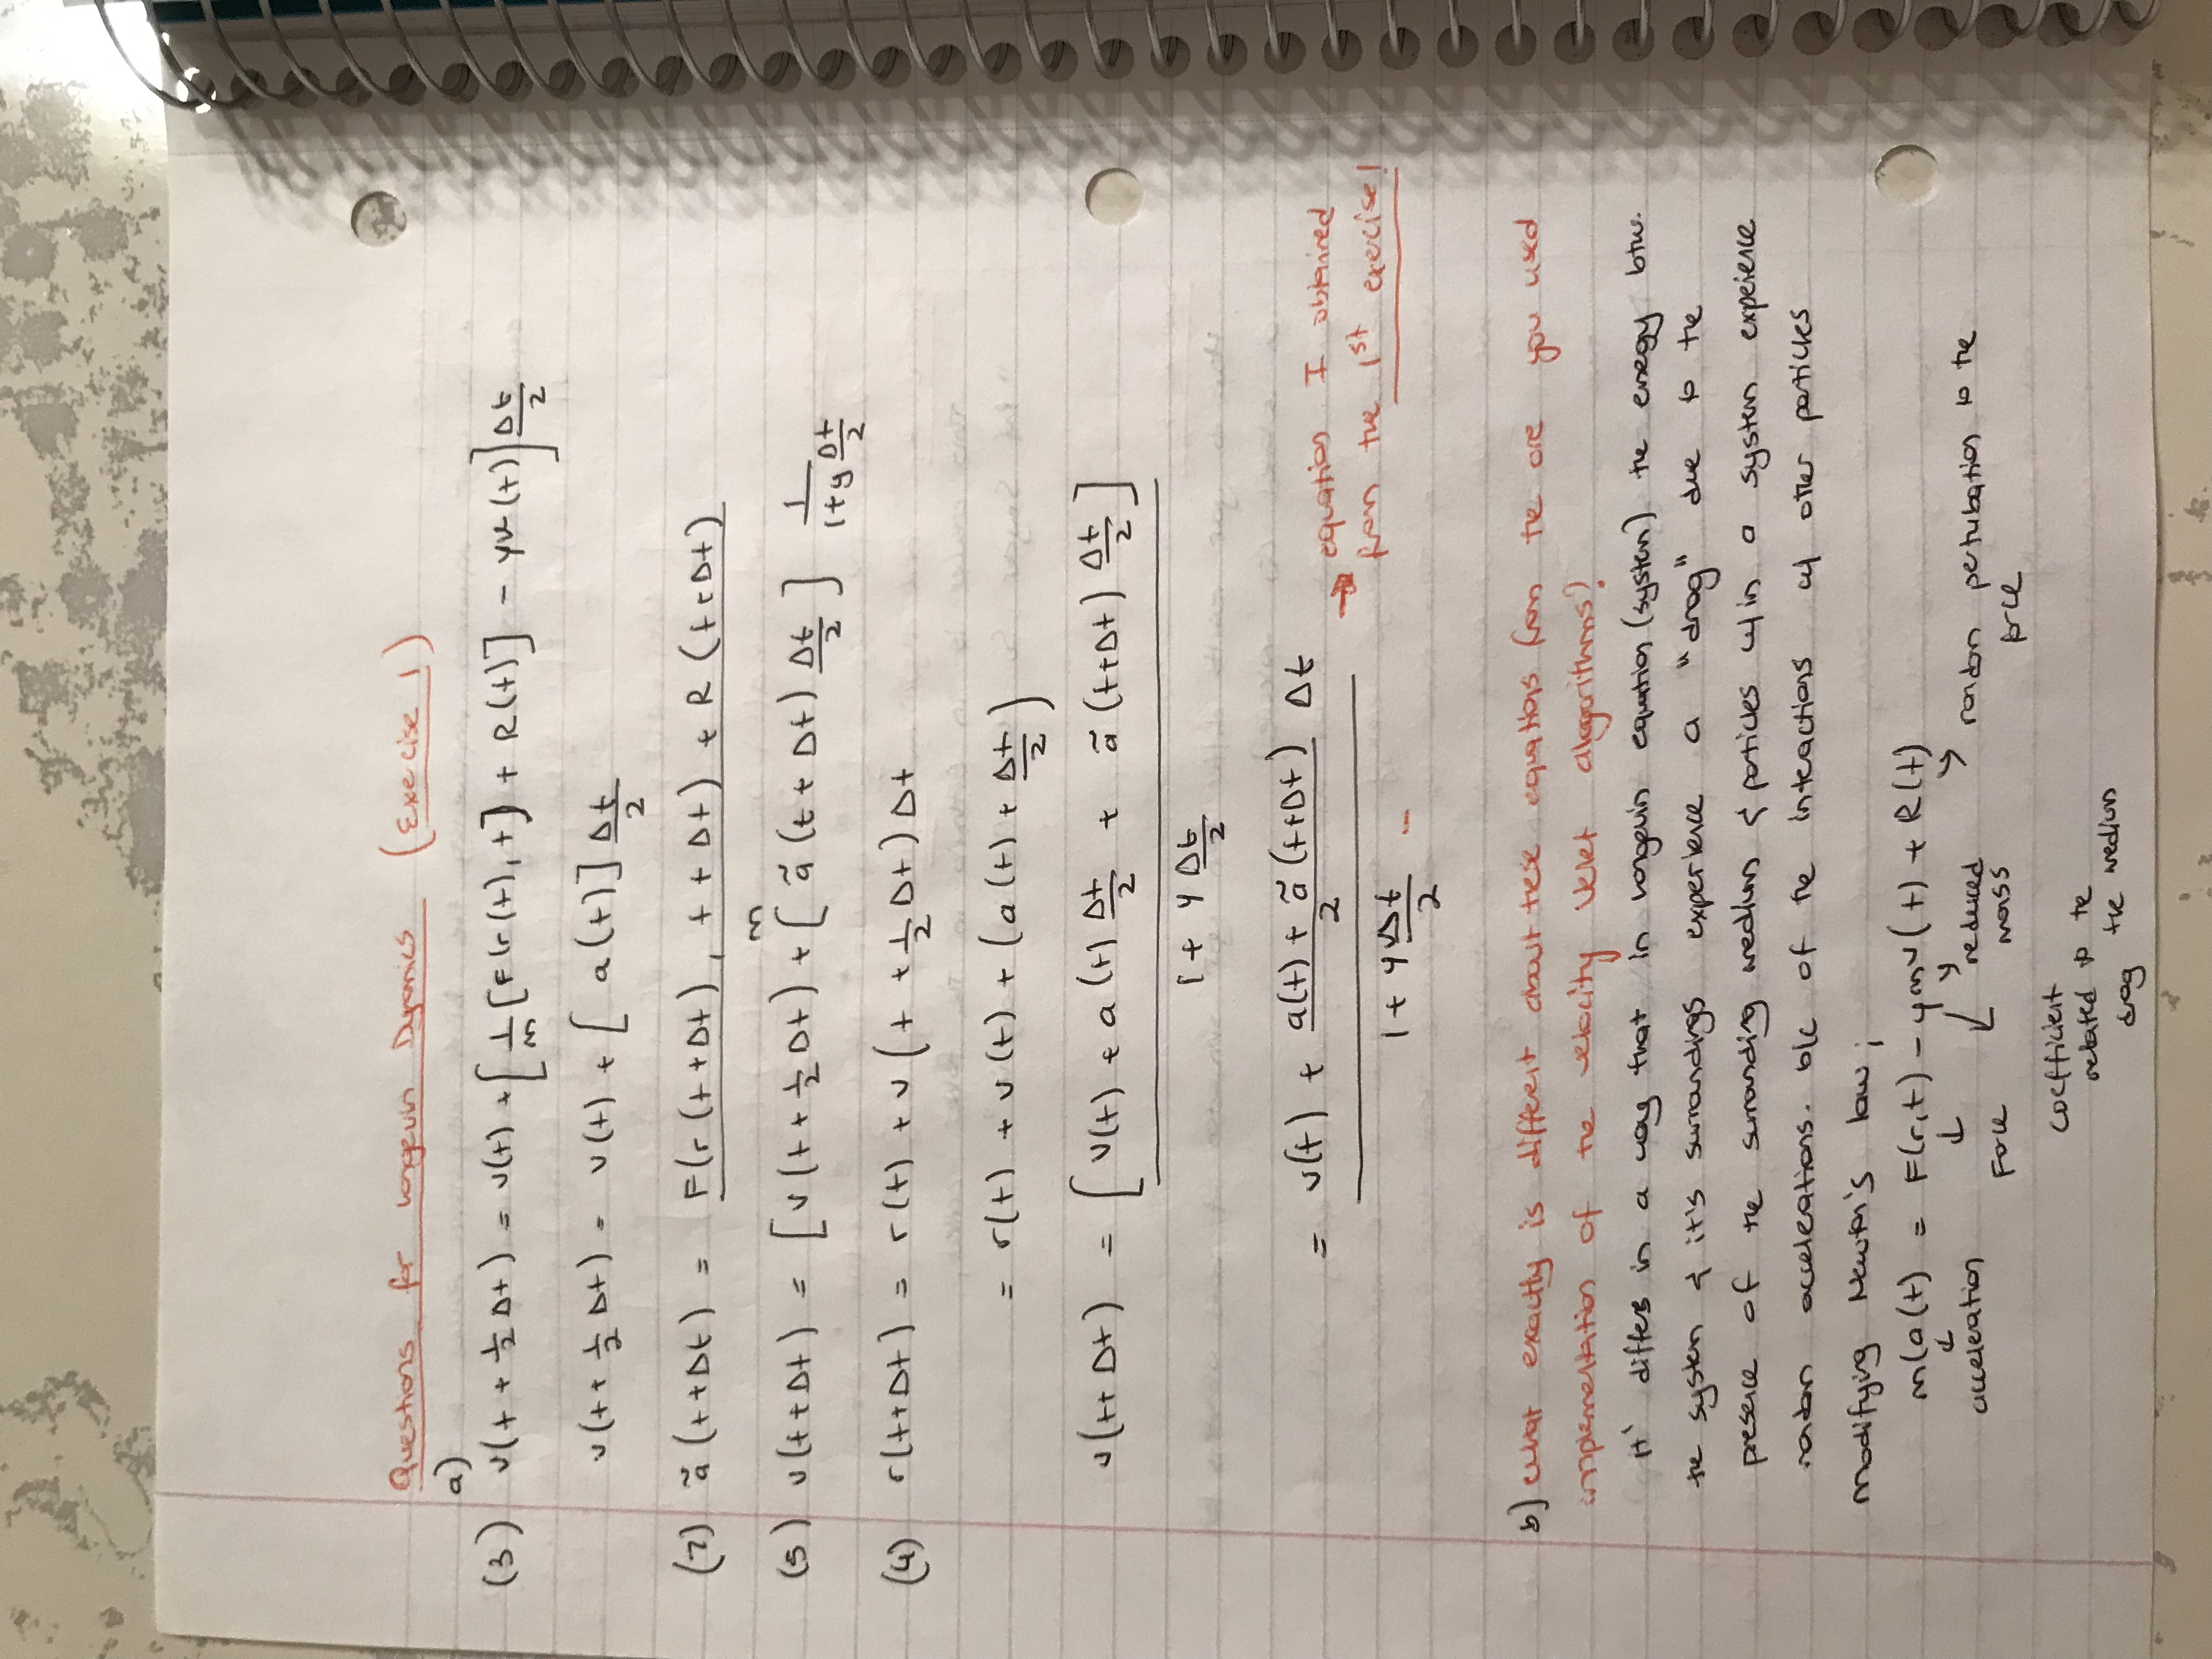 Questions for Langevin Dynamics (Exercise 1)
a)
(3) v(t + 1/2 Δt) = v(t) + [1/m [F(r(t), t] + R(t)] - γv(t)] Δt/2
v(t + 1/2 Δt) = v(t) + [a(t)] Δt/2
(7) ã(t+Δt) = F(r(t+Δt), t+Δt) + R(t+Δt) / m
(5) v(t+Δt) = [v(t + 1/2 Δt) + [ã(t+Δt) Δt/2] 1/(1+γ Δt/2)
(4) r(t+Δt) = r(t) + v(t + 1/2 Δt) Δt
= r(t) + v(t) + (a(t) + Δt/2)
v(t+Δt) = [v(t) + a(t) Δt/2 + ã(t+Δt) Δt/2] / 1 + γ Δt/2
= v(t) + a(t) + ã(t+Δt)/2 Δt / 1 + γ Δt/2
→ equation I obtained
from the 1st exercise!
b) What exactly is different about these equations from the one you used
implementation of the velocity Verlet alogorithms?
it' differs in a way that in Langevin equation (system) the energy btw.
the system & it's surrandings experience a "drag" due to the
presence of the surranding medium & particles w/in a system experience
random accelerations. b/c of the interactions w/ other particles
Modifying Newton's law;
m(a(t) = F(r,t) - γmv(t) + R(t)
acceleration
Force
reduced
mass
random pertubation to the
force
coefficient
related to the
drag the medium